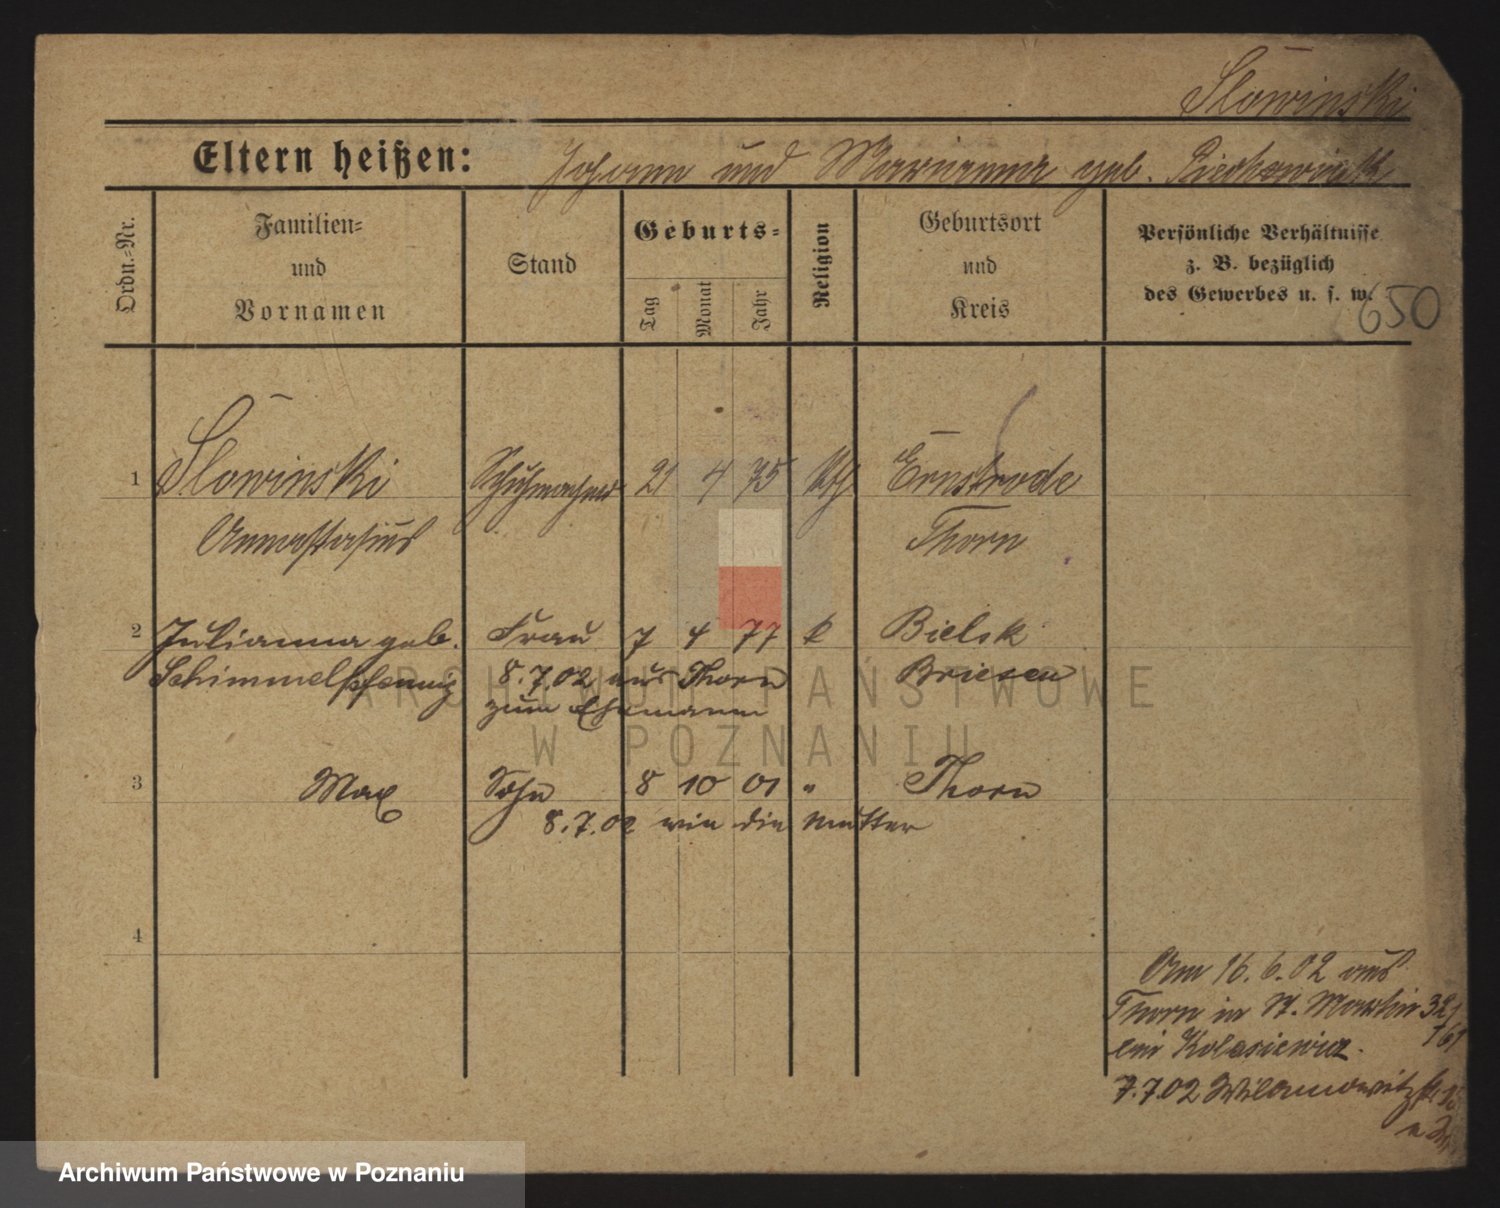 Słowinski
Eltern heißen: Johann und Marianna geb.
Ordn.-Nr.
Familien-
und
Vornamen
Stand
Geburts-
Tag
Monat
Jahr
Religion
Geburtsort
und
Kreis
Persönliche Verhältnisse
z. B. bezüglich
des Gewerbes u. s. w.
650
1 Słowinski Schuhmacher 21 4 75 kth Ernstrode
Annastasius Thorn
2 Julianna geb. Frau 7 4 77 k Bielsk
Schimmelpfennig 8.7.02 aus Thorn Briesen
zum Ehemann
3 Max Sohn 8 10 01 " Thorn
8.7.02 wie die Mutter
4
Am 16.6.02 aus
Thorn in St. Martin 32/
bei Kolasiewicz.
7.7.02
ARCHIWUM PAŃSTWOWE
W POZNANIU
Archiwum Państwowe w Poznaniu